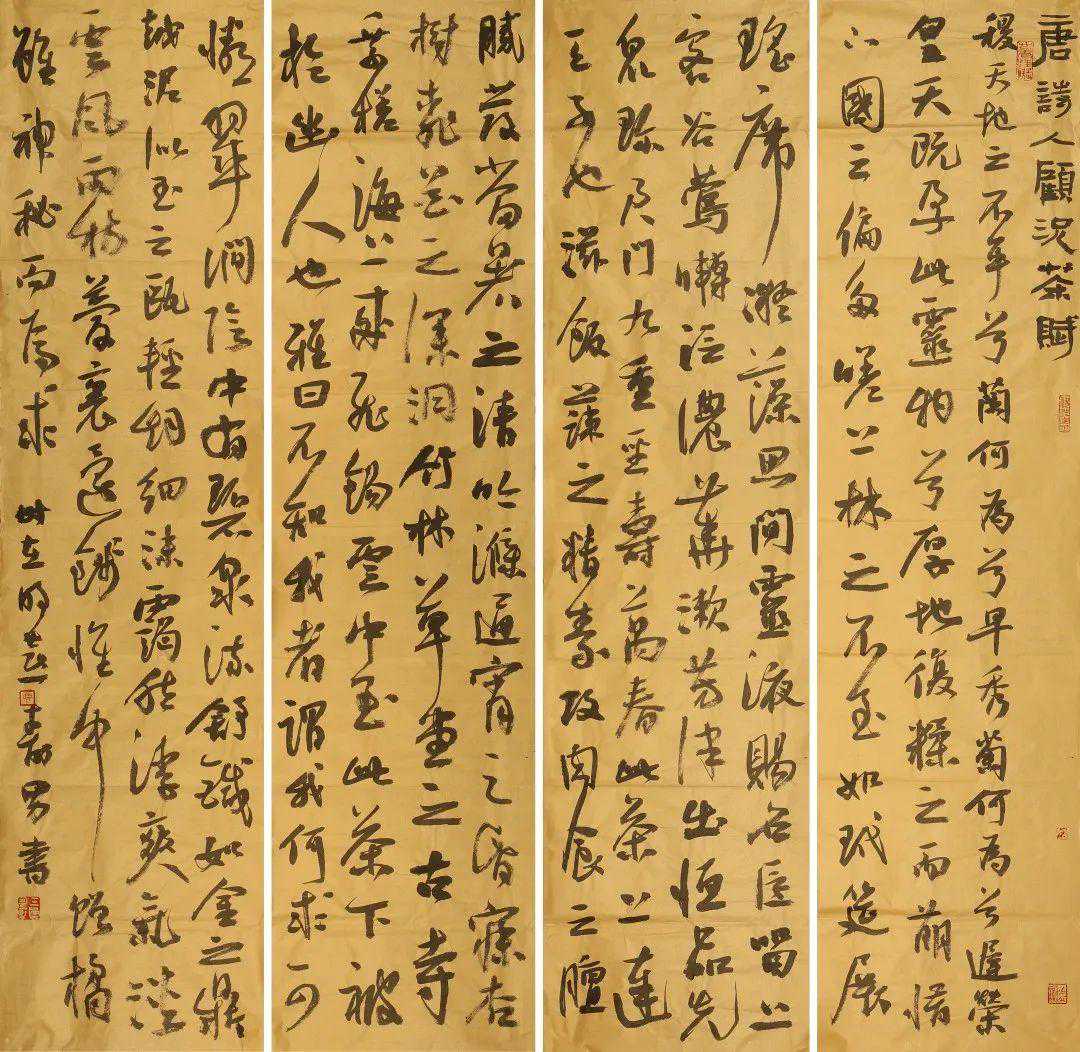 唐詩人顧況茶賦
稷天地之不平兮蘭何為兮早秀菊何為兮遲榮
皇天既孕此靈物兮厚地復糅之而萌惜
下國之偏多嗟上林之不至如玳筵展
瑤席凝藻思間靈液賜名臣留上
客谷鶯囀泛濃華漱芳津出恒品先
衆珍君門九重聖壽萬春此茶上達
天子也滋飯蔬之精素攻肉食之膻
膩發當暑之清吟滌通宵之昏寐杏
樹桃花之深洞竹林草堂之古寺
乘槎海上來飛錫雲中至此茶下被
於幽人也雅曰不知我者謂我何求可
憐翠澗陰中有碧泉流舒鐵如金之鼎
越泥似玉之甌輕煙細沫靄然浮爽氣淡
雲風雨秋夢裏還錢懷中贈橘
雖神秘而焉求 時在明 男書